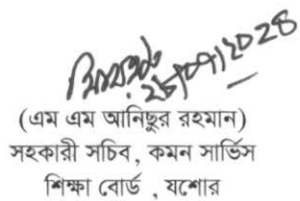 ২৮/০৭/২০২৪
(এম এম আনিছুর রহমান)
সহকারী সচিব, কমন সার্ভিস
শিক্ষা বোর্ড , যশোর